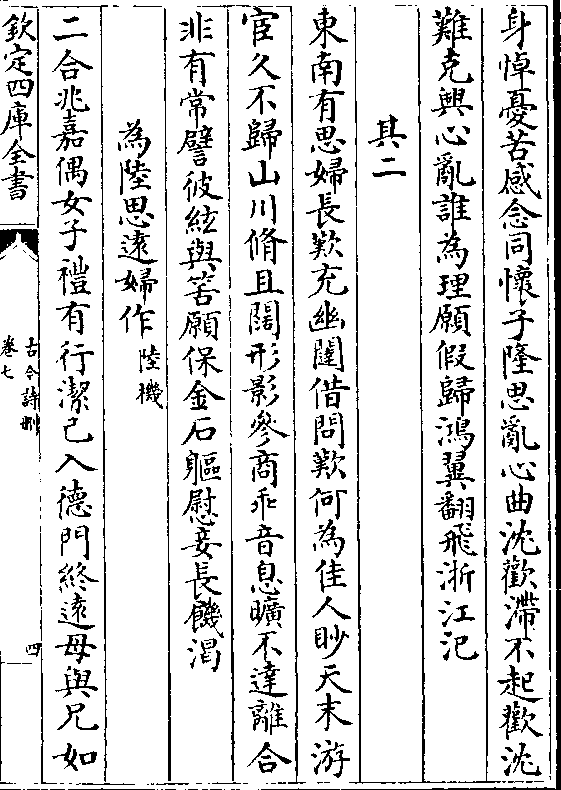 身悼憂苦感念同懷子隆思亂心曲沈歡滯不起歡沈
難克興心亂誰為理願假歸鴻翼翻飛浙江汜
其二
東南有思婦長歎充幽闥借問歎何為佳人眇天末游
宦久不歸山川脩且闊形影參商乖音息曠不達離合
非有常譬彼絃與筈願保金石軀慰妾長饑渴
為陸思遠婦作 陸機
二合兆嘉偶女子禮有行潔己入德門終遠母與兄如
欽定四庫全書
古今詩刪
卷七
四